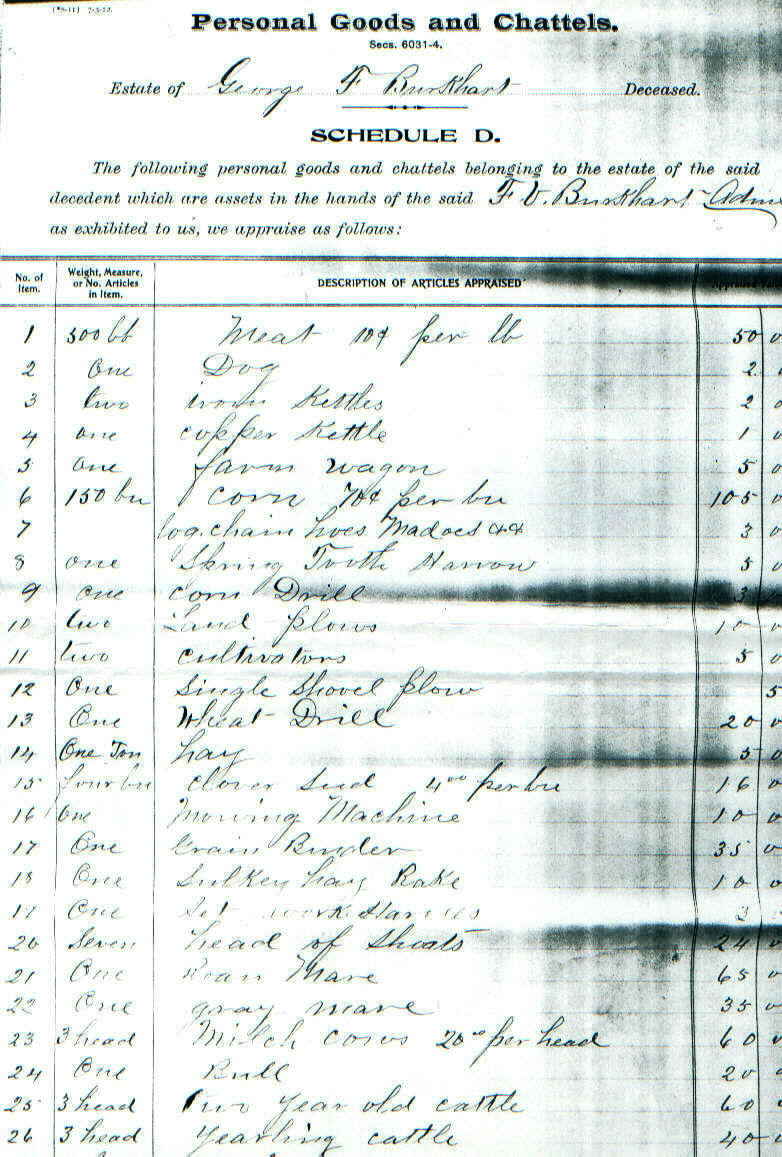 Personal Goods and Chattels.
Secs. 6031-4.
Estate of George F Burkhart Deceased.
SCHEDULE D.
The following personal goods and chattels belonging to the estate of the said
decedent which are assets in the hands of the said F V. Burkhart Adm
as exhibited to us, we appraise as follows:
No. of Item. Weight, Measure, or No. Articles in Item. DESCRIPTION OF ARTICLES APPRAISED Appraised
1 500 lb Meat 10¢ per lb 50 0
2 One Dog 2
3 two iron Kettles 2 0
4 one copper Kettle 1 0
5 one farm wagon 5 0
6 150 bu corn 70¢ per bu 105 0
7 log chain hoes Madocs 3 0
8 one Spring Tooth Harrow 5 0
9 one corn Drill 3
10 two Land plows 10 0
11 two cultivators 5 0
12 One Single Shovel plow 5
13 One Wheat Drill 20 0
14 One Ton hay 5 0
15 four bu clover seed 4⁰⁰ per bu 16 0
16 one Mowing Machine 10 0
17 One Grain Binder 35 0
18 One Sulkey hay Rake 10 0
19 One Set work Harness 3
20 Seven head of Shoats 24 0
21 One Roan Mare 65 0
22 One gray mare 35 0
23 3 head Milch cows 20⁰⁰ per head 60
24 One Bull 20 0
25 3 head Two Year old cattle 60
26 3 head yearling cattle 40 0